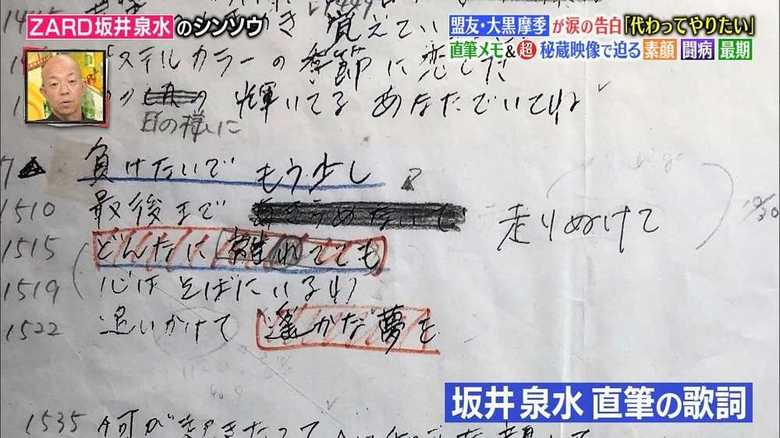 ZARD坂井泉水のシンソウ
盟友・大黒摩季が涙の告白「代わってやりたい」
直筆メモ&超秘蔵映像で迫る素顔 闘病 最期
ステルカラーの季節に恋した
の輝いてる あなたでいてね
日の様に
負けないで もう少し
1510 最後まで 走りぬけて
1515 どんなに離れてても
1519 (心はそばにいるわ)
1522 追いかけて 遥かな夢を
1535 何が起きたって
坂井泉水 直筆の歌詞